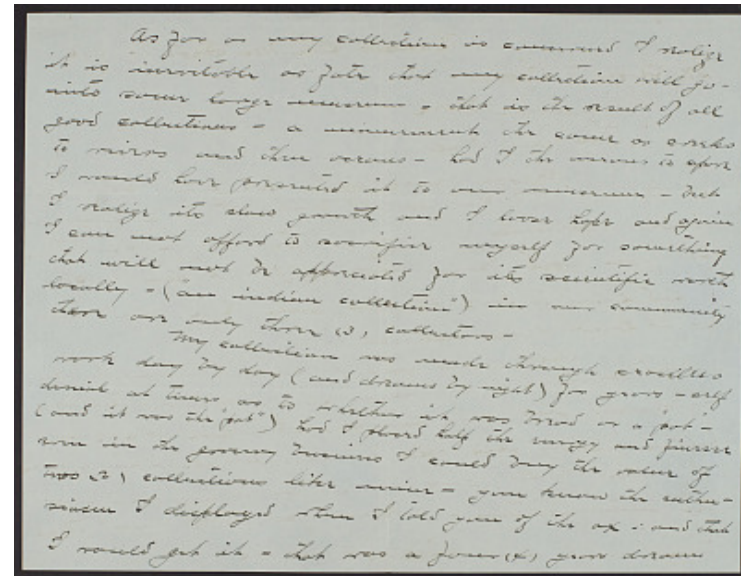 As far as my collection is concerned I realize
it is inevitable as fate that my collection will go
into some large museum - that is the result of all
good collections - a the same as creeks
to rivers and then oceans - had I the means to spare
I would have presented it to our museum - but
I realize its slow growth and I lose hope and again
I can not afford to sacrifice myself for something
that will not be appreciated for its scientific worth
locally - ("an indian collection") in our community
there are only three (3) collectors -
My collection was made through ceaseless
work day by day (and dreams by night) for years - self
denial at times as to whether it was bread or a "pot" -
(and it was the "pot") had I placed half the energy and
in the grocery business I could buy the value of
two (2) collections like mine - you know the enthu-
siasm I displayed when I told you of the ax : and that
I would get it - that was a four (4) years dream